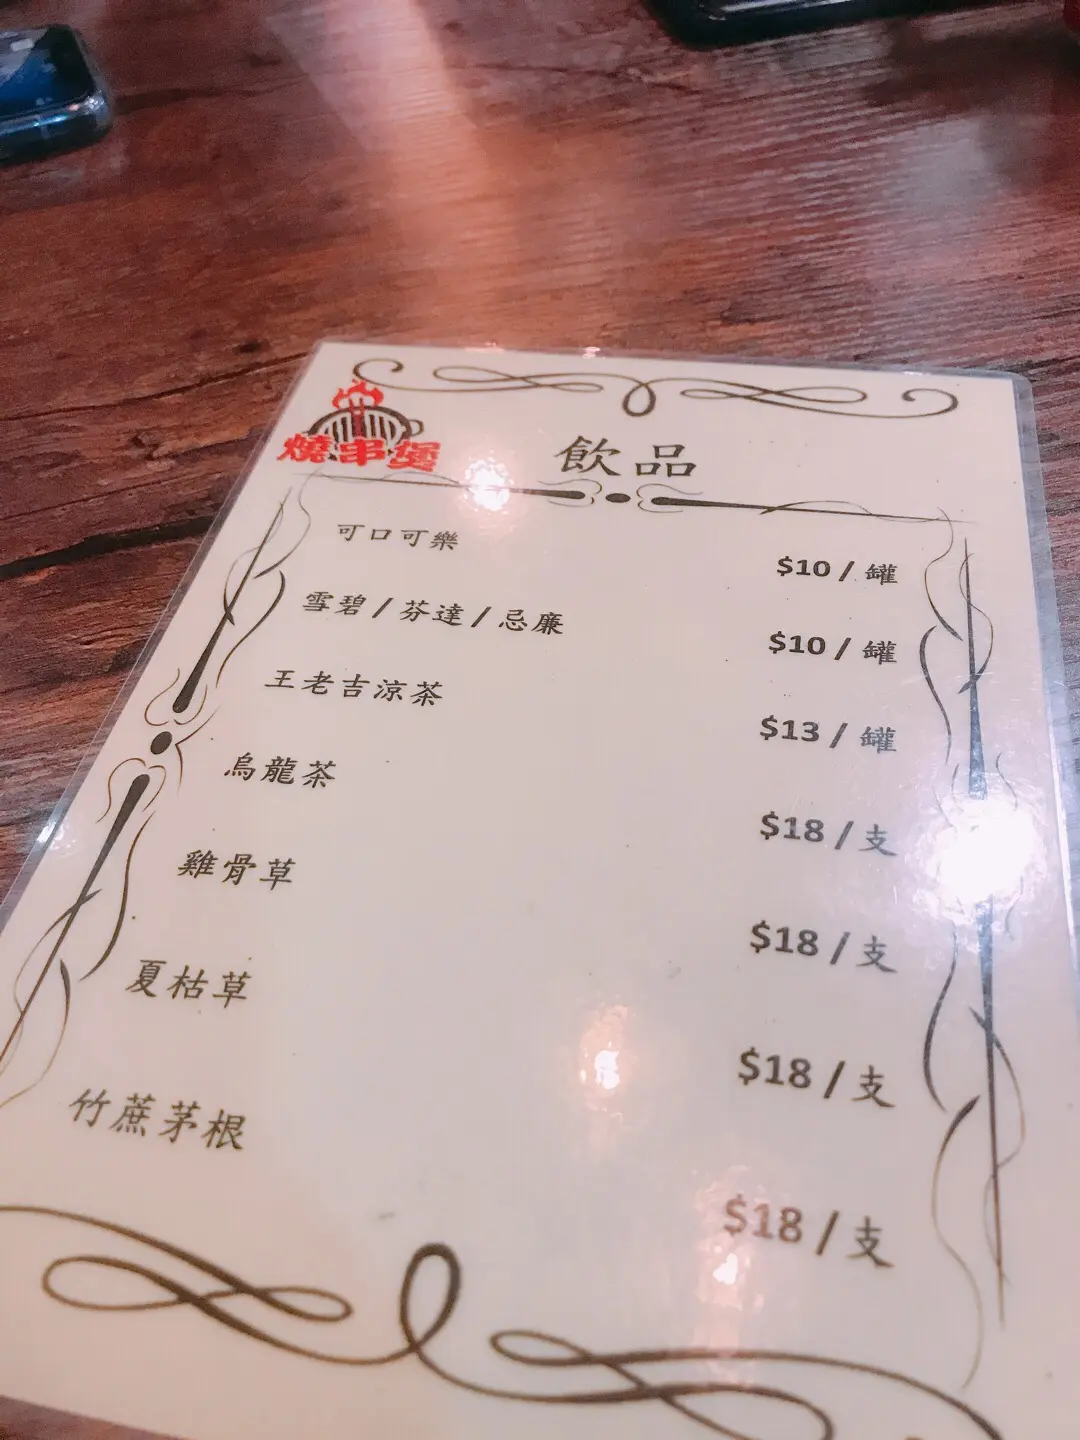 燒串煲
飲品
可口可樂 $10 / 罐
雪碧 / 芬達 / 忌廉 $10 / 罐
王老吉涼茶 $13 / 罐
烏龍茶 $18 / 支
雞骨草 $18 / 支
夏枯草 $18 / 支
竹蔗茅根 $18 / 支